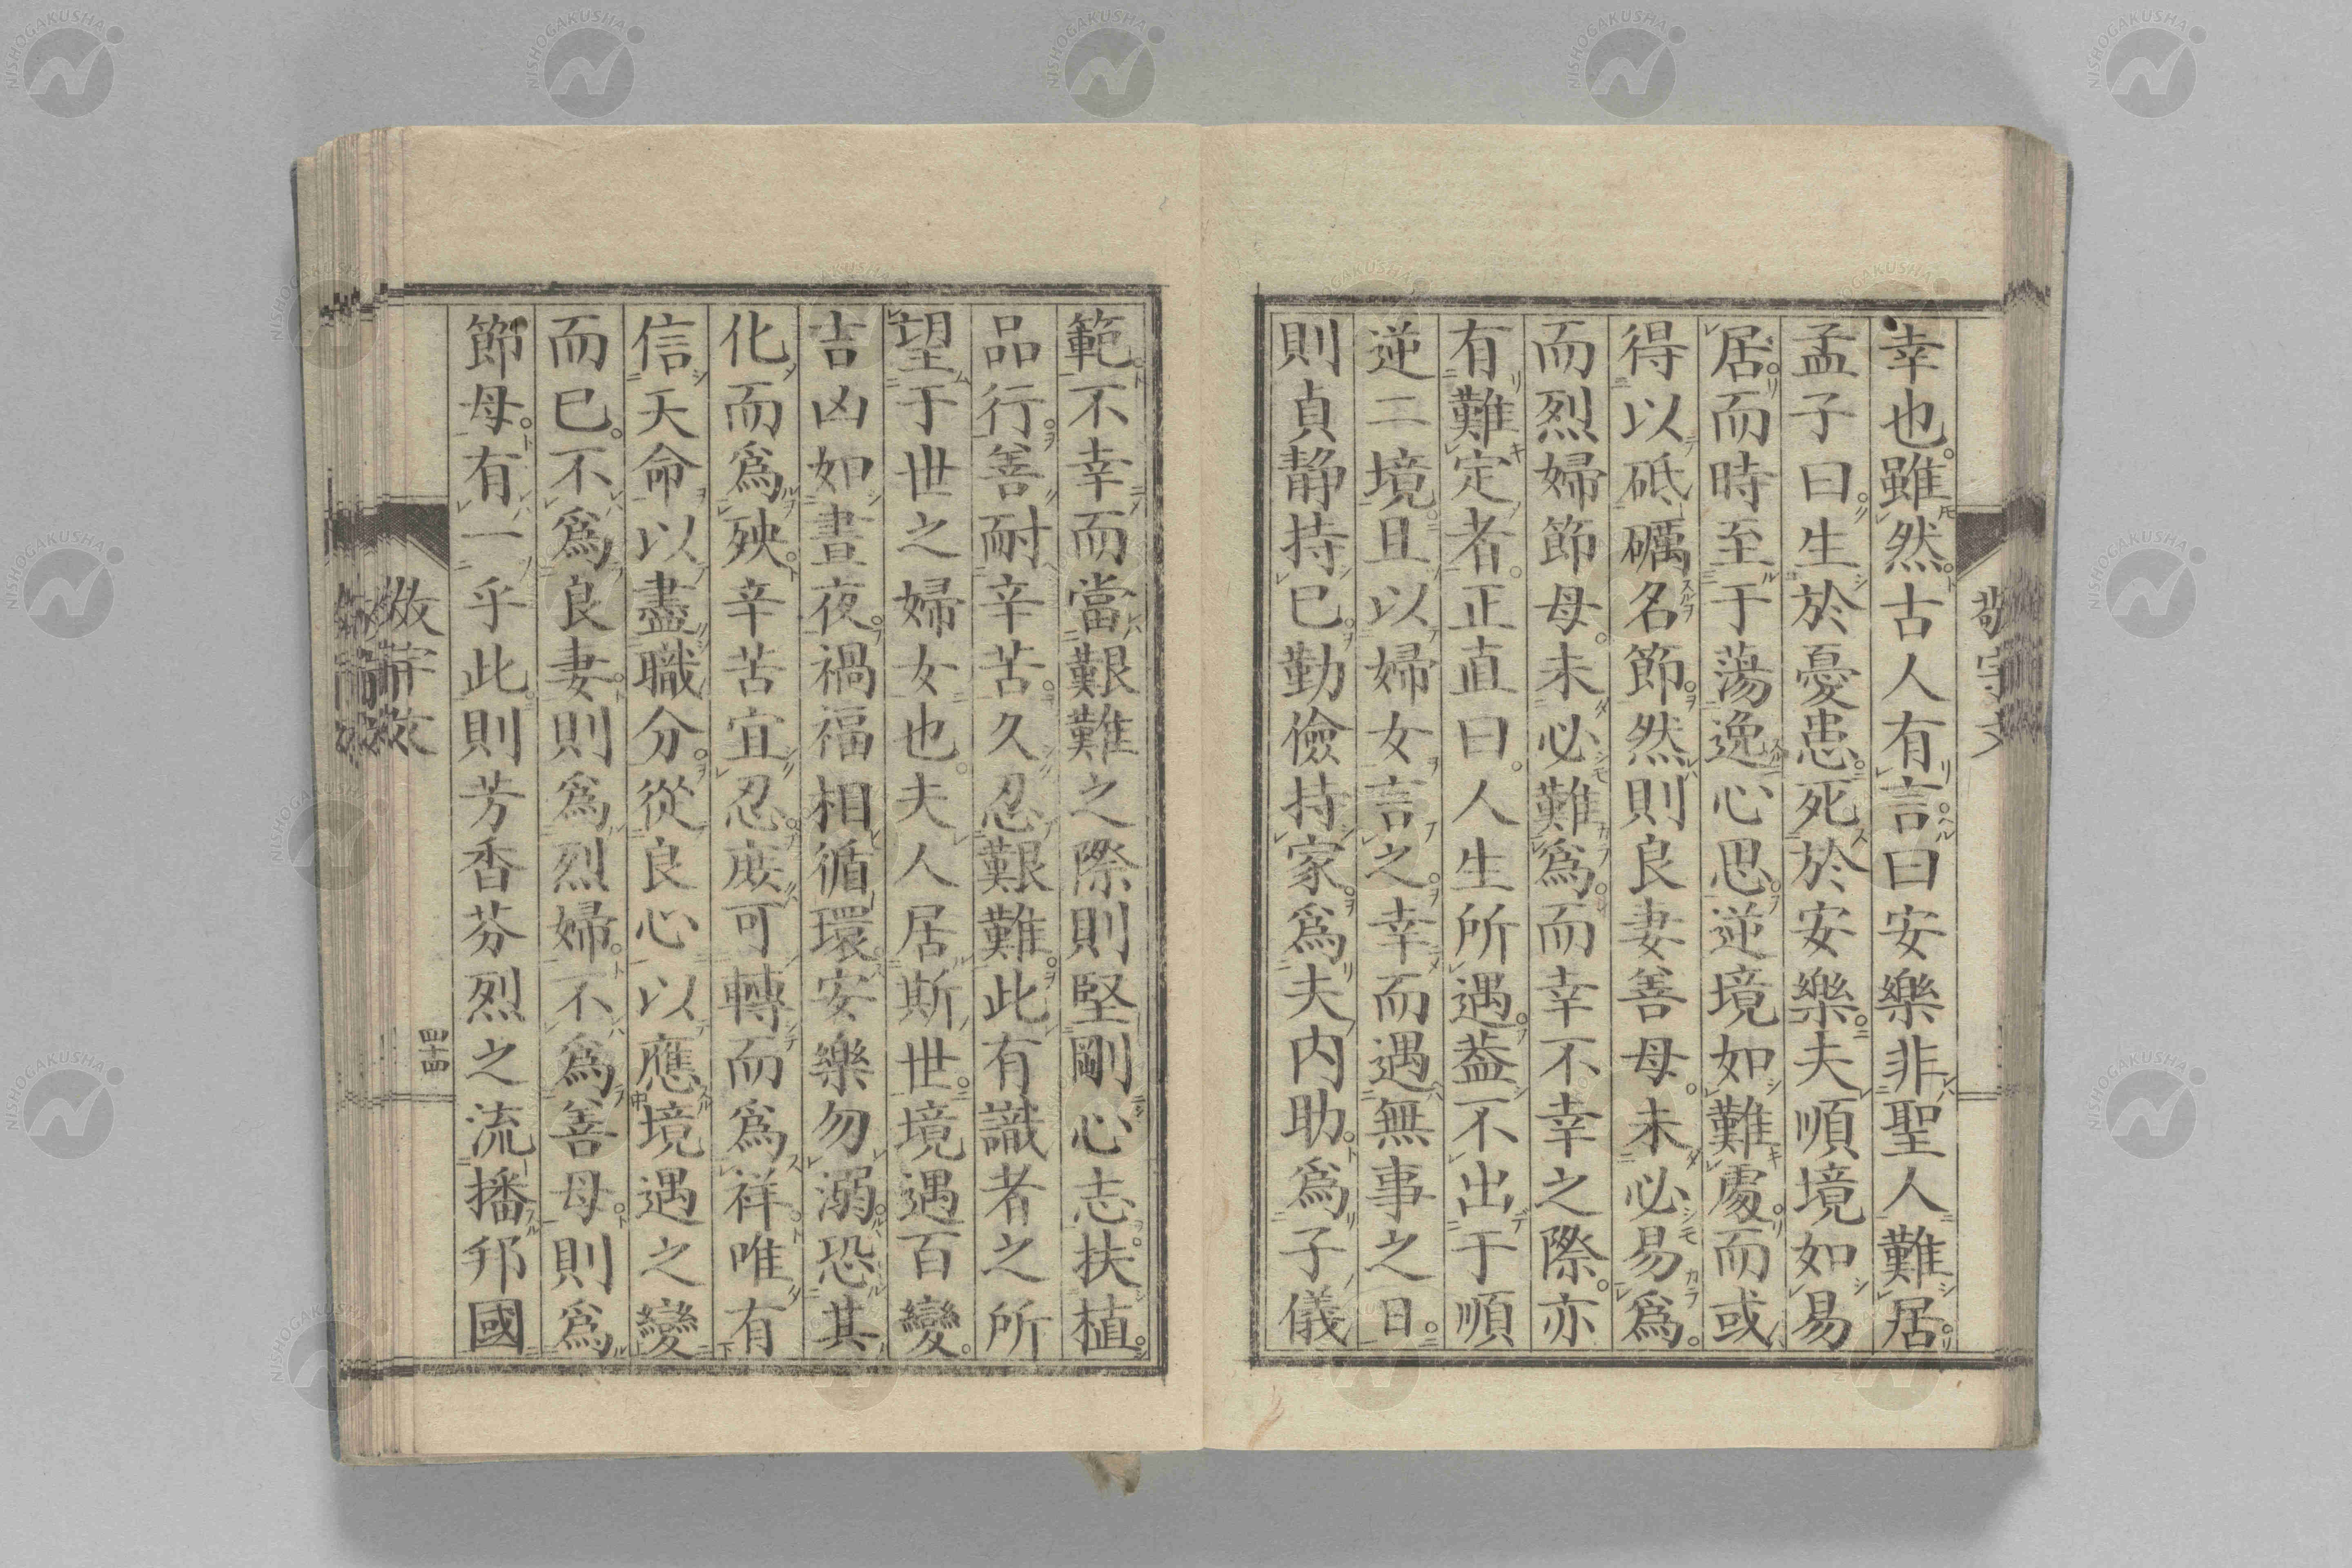 幸也雖然古人有言曰安樂非聖人難居
孟子曰生於憂患死於安樂夫順境如易
居而時至于蕩逸心思逆境如難處而或
得以砥礪名節然則良妻善母未必易爲
而烈婦節母未必難爲而幸不幸之際亦
有難定者正直曰人生所遇葢不出于順
逆二境且以婦女言之幸而遇無事之日
則貞静持己勤儉持家爲夫内助爲子儀
範不幸而當艱難之際則堅剛心志扶植
品行善耐辛苦久忍艱難此有識者之所
望于世之婦女也夫人居斯世境遇百變
吉凶如晝夜禍福相循環安樂勿溺恐其
化而爲殃辛苦宜忍庻可轉而爲祥唯有
信天命以盡職分從良心以應境遇之變
而已不爲良妻則爲烈婦不爲善母則爲
節母有一乎此則芳香芬烈之流播邦國
四十四